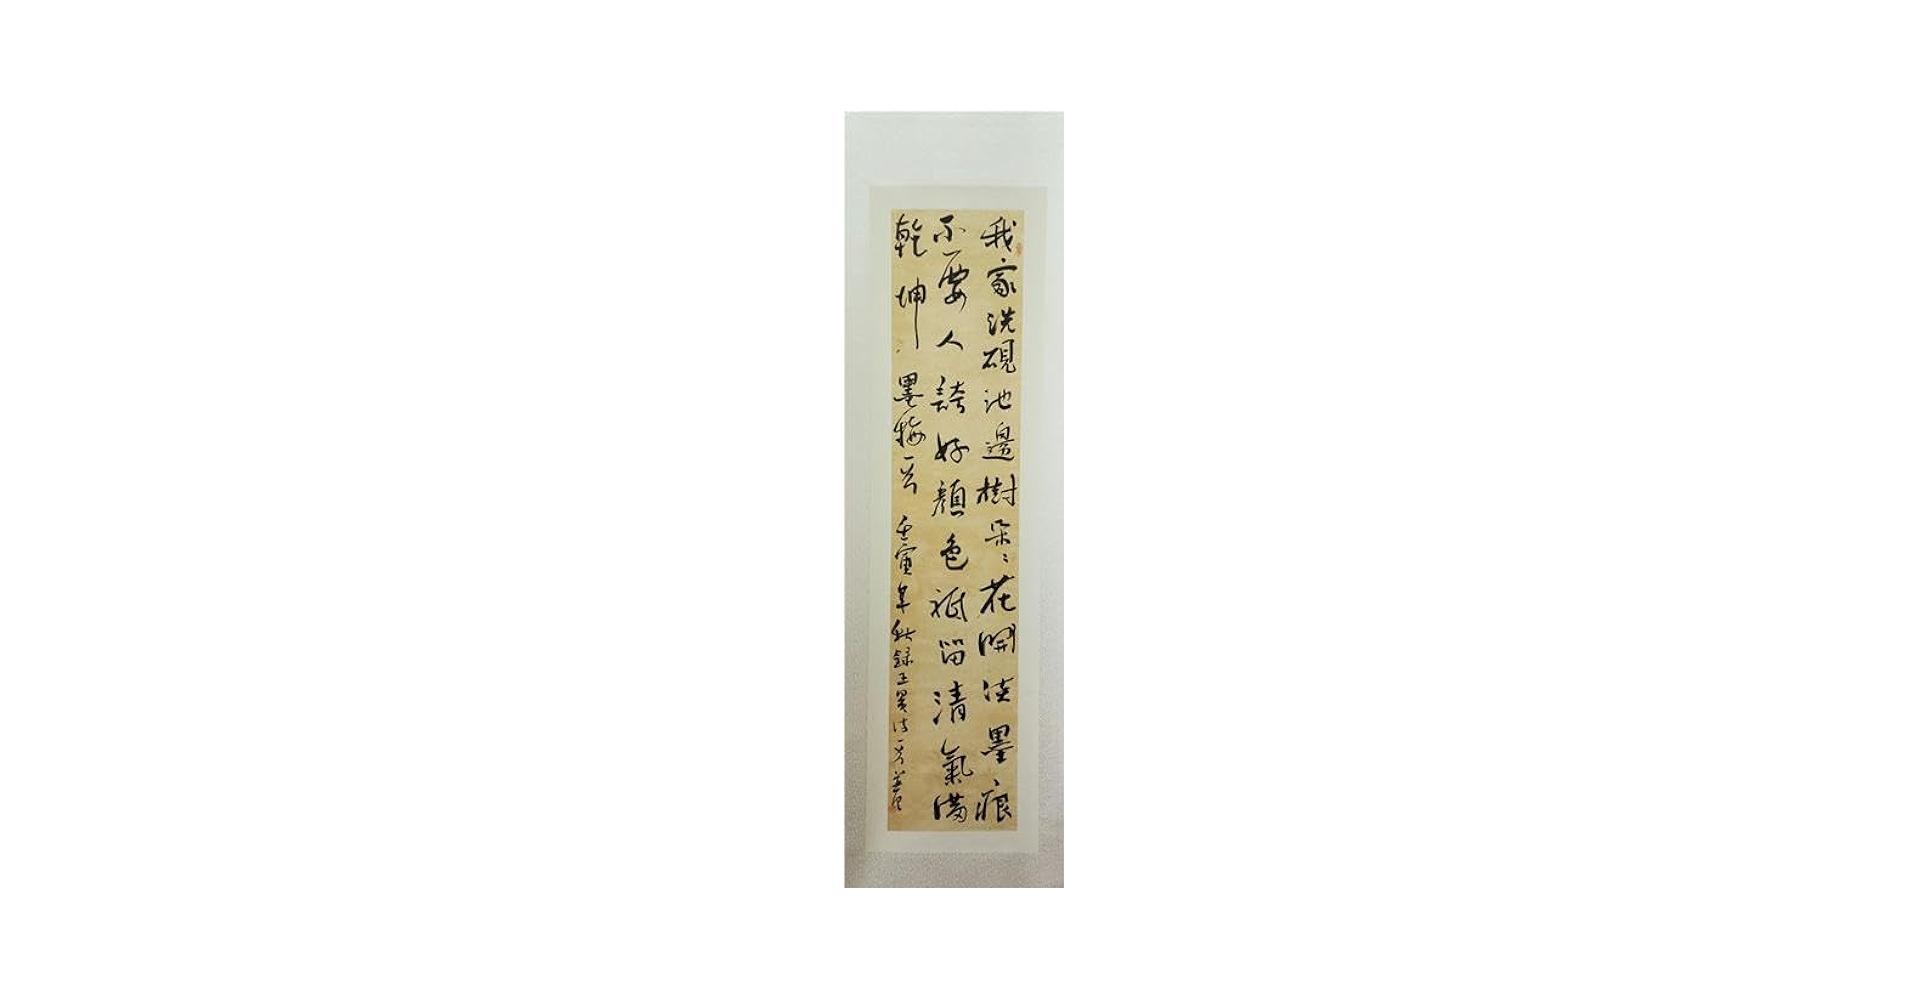 我家洗硯池邊樹朵〻花開淡墨痕
不要人誇好顏色祇留清氣滿
乾坤 墨梅一首 壬寅年秋錄王冕詩一首